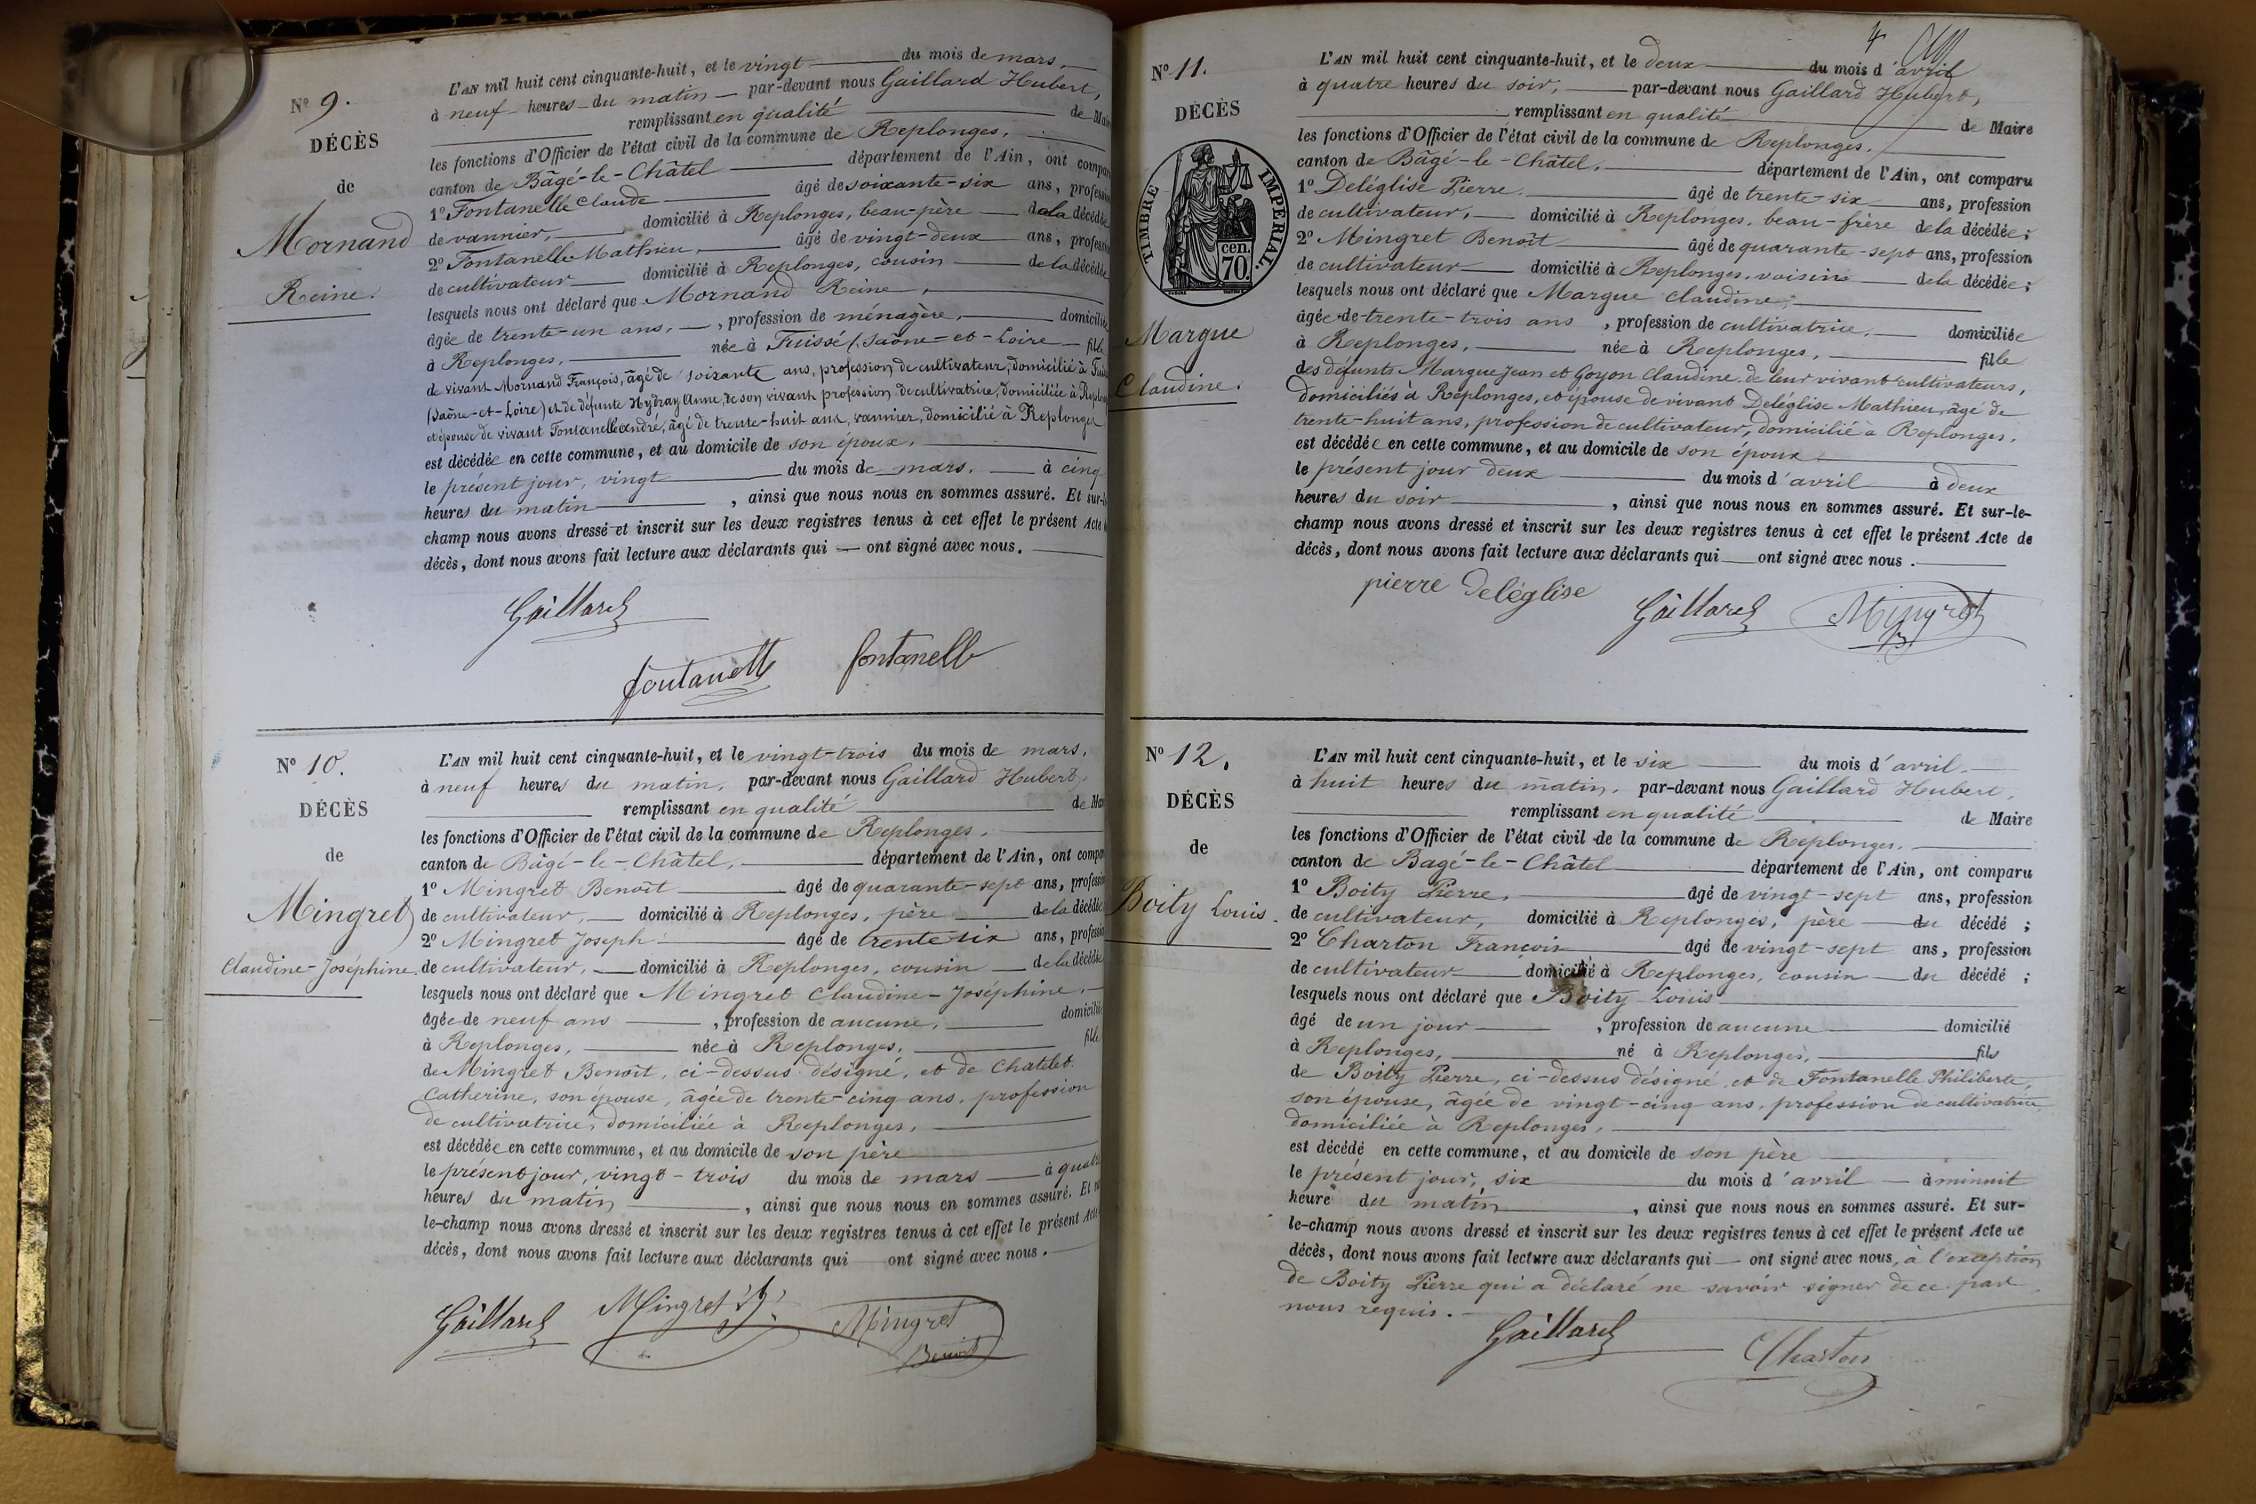 N° 9.
DÉCÈS
de
Mornand
Reine.
L'AN mil huit cent cinquante-huit, et le vingt du mois de mars,
à neuf heures du matin par-devant nous Gaillard Hubert,
remplissant en qualité de Maire
les fonctions d'Officier de l'état civil de la commune de Replonges,
canton de Bâgé-le-Châtel département de l'Ain, ont compar
1° Fontanelle Claude âgé de soixante-six ans, profession
de vannier, domicilié à Replonges, beau-père de la décédée
2° Fontanelle Mathieu, âgé de vingt-deux ans, profession
de cultivateur domicilié à Replonges, cousin de la décédée
lesquels nous ont déclaré que Mornand Reine,
âgée de trente-un ans, , profession de ménagère, domiciliée
à Replonges, née à Fuissé (Saône-et-Loire fille
de vivant Mornand François, âgé de soixante ans, profession de cultivateur, domicilié à
(Saône-et-Loire) et de défunte Anne, de son vivant profession de cultivatrice, domiciliée à Replonges
et épouse de vivant Fontanelle André, âgé de trente-huit ans, vannier, domicilié à Replonges
est décédée en cette commune, et au domicile de son époux,
le présent jour, vingt du mois de mars, à cinq
heures du matin , ainsi que nous nous en sommes assuré. Et sur-le
champ nous avons dressé et inscrit sur les deux registres tenus à cet effet le présent Acte
décès, dont nous avons fait lecture aux déclarants qui — ont signé avec nous.
Gaillard
fontanelle fontanelle
N° 10.
DÉCÈS
de
Mingret
Claudine-Joséphine.
L'AN mil huit cent cinquante-huit, et le vingt-trois du mois de mars,
à neuf heures du matin, par-devant nous Gaillard Hubert,
remplissant en qualité de Mai
les fonctions d'Officier de l'état civil de la commune de Replonges,
canton de Bâgé-le-Châtel, département de l'Ain, ont compar
1° Mingret Benoît âgé de quarante-sept ans, profession
de cultivateur, domicilié à Replonges, père de la décédée
2° Mingret Joseph âgé de trente six ans, profession
de cultivateur, domicilié à Replonges, cousin de la décédée
lesquels nous ont déclaré que Mingret Claudine-Joséphine,
âgée de neuf ans , profession de aucune, domiciliée
à Replonges, née à Replonges, fille
de Mingret Benoît, ci-dessus désigné, et de Chatelet
Catherine, son épouse, âgée de trente-cinq ans, profession
de cultivatrice, domiciliée à Replonges,
est décédée en cette commune, et au domicile de son père
le présent jour, vingt-trois du mois de mars à quatre
heures du matin , ainsi que nous nous en sommes assuré. Et
le-champ nous avons dressé et inscrit sur les deux registres tenus à cet effet le présent Acte
décès, dont nous avons fait lecture aux déclarants qui ont signé avec nous.
Gaillard Mingret Mingret
Benoit
4
N° 11.
DÉCÈS
TIMBRE IMPERIAL.
cen.
70.
Margue
Claudine.
L'AN mil huit cent cinquante-huit, et le deux du mois d'avril
à quatre heures du soir, par-devant nous Gaillard Hubert,
remplissant en qualité de Maire
les fonctions d'Officier de l'état civil de la commune de Replonges,
canton de Bâgé-le-Châtel, département de l'Ain, ont comparu
1° Deléglise Pierre, âgé de trente-six ans, profession
de cultivateur, domicilié à Replonges, beau-frère de la décédée;
2° Mingret Benoît âgé de quarante-sept ans, profession
de cultivateur domicilié à Replonges, voisin de la décédée;
lesquels nous ont déclaré que Margue Claudine,
âgée de trente-trois ans , profession de cultivatrice, domiciliée
à Replonges, née à Replonges, fille
des défunts Margue Jean et Goyon Claudine de leur vivant cultivateurs,
domiciliés à Replonges, et épouse de vivant Deléglise Mathieu, âgé de
trente-huit ans, profession de cultivateur, domicilié à Replonges,
est décédée en cette commune, et au domicile de son époux
le présent jour deux du mois d'avril à deux
heures du soir , ainsi que nous nous en sommes assuré. Et sur-le-
champ nous avons dressé et inscrit sur les deux registres tenus à cet effet le présent Acte de
décès, dont nous avons fait lecture aux déclarants qui ont signé avec nous.
pierre deléglise Gaillard Mingret
B
N° 12.
DÉCÈS
de
Boity Louis.
L'AN mil huit cent cinquante-huit, et le six du mois d'avril
à huit heures du matin, par-devant nous Gaillard Hubert,
remplissant en qualité de Maire
les fonctions d'Officier de l'état civil de la commune de Replonges,
canton de Bagé-le-Châtel département de l'Ain, ont comparu
1° Boity Pierre, âgé de vingt-sept ans, profession
de cultivateur, domicilié à Replonges, père du décédé ;
2° Charton François âgé de vingt-sept ans, profession
de cultivateur domicilié à Replonges, cousin du décédé ;
lesquels nous ont déclaré que Boity Louis
âgé de un jour , profession de aucune domicilié
à Replonges, né à Replonges, fils
de Boity Pierre, ci-dessus désigné, et de Fontanelle Philiberte,
son épouse, âgée de vingt-cinq ans, profession de cultivatrice
domiciliée à Replonges,
est décédé en cette commune, et au domicile de son père
le présent jour, six du mois d'avril à minuit
heure du matin , ainsi que nous nous en sommes assuré. Et sur-
le-champ nous avons dressé et inscrit sur les deux registres tenus à cet effet le présent Acte de
décès, dont nous avons fait lecture aux déclarants qui — ont signé avec nous, à l'exception
de Boity Pierre qui a déclaré ne savoir signer de ce par
nous requis.
Gaillard Charton